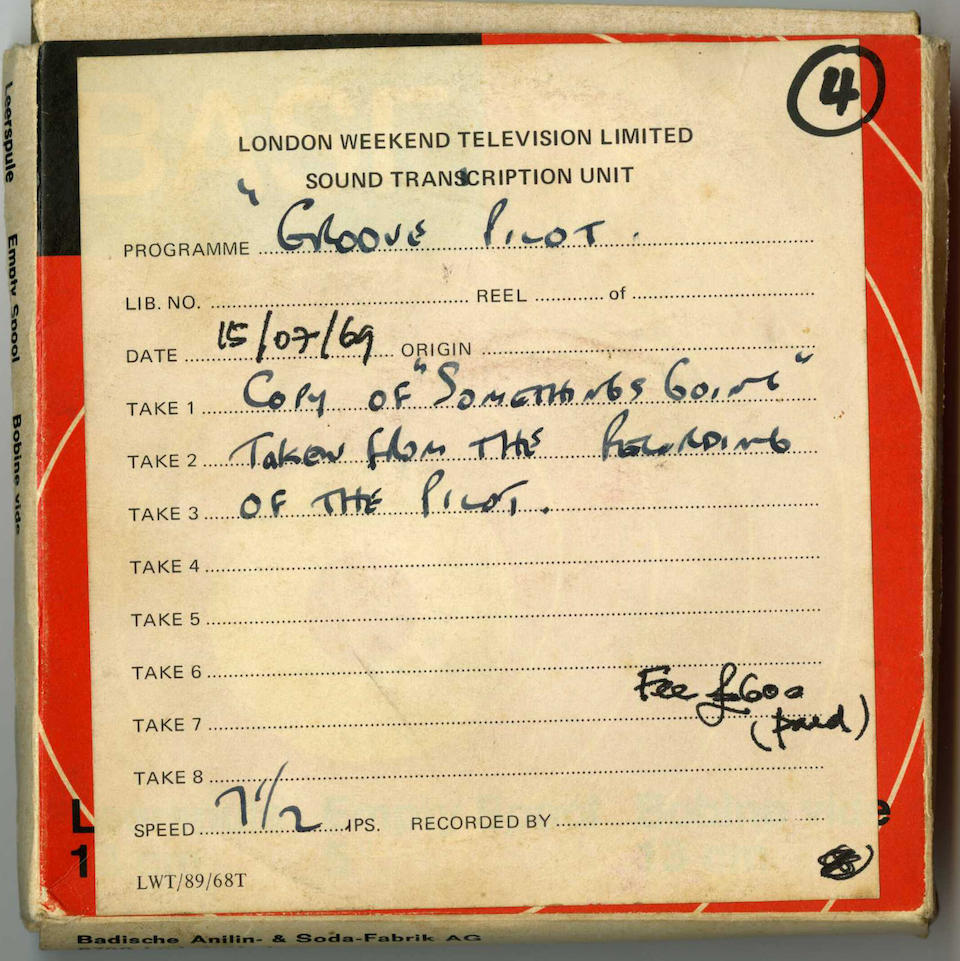 4
LONDON WEEKEND TELEVISION LIMITED
SOUND TRANSCRIPTION UNIT
PROGRAMME "GROOVE PILOT.
LIB. NO. REEL of
DATE 15/07/69 ORIGIN
TAKE 1 COPY OF "SOMETHINGS GOING"
TAKE 2 TAKEN FROM THE RECORDING
TAKE 3 OF THE PILOT.
TAKE 4
TAKE 5
TAKE 6
Fee £600
TAKE 7
(paid)
TAKE 8
SPEED 7 1/2 IPS. RECORDED BY
LWT/89/68T
Leerspule Empty Spool Bobine vide
Badische Anilin- & Soda-Fabrik AG